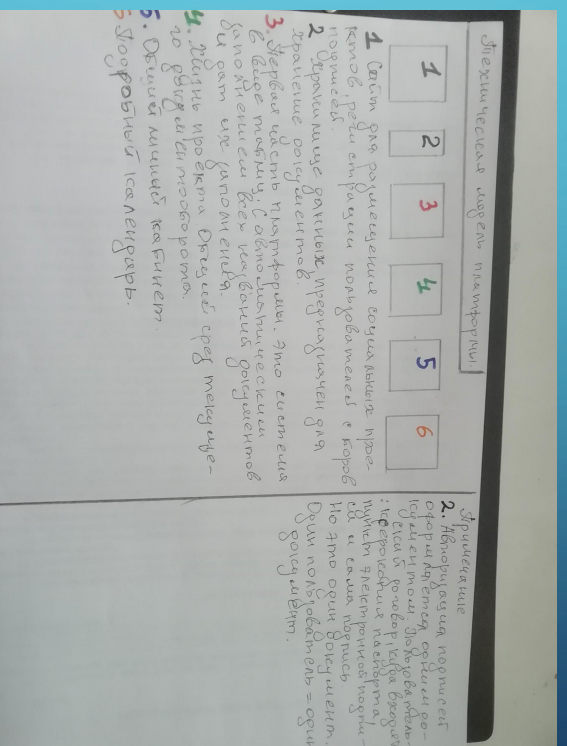 Техническая модель платформы.
1 2 3 4 5 6
1 Сайт для размещения социальных прое-
ктов, регистрации пользователей с
подписей.
2 Хранилище данных, предназначен для
хранение документов.
3. Первая часть платформы. Это система
в виде таблиц, с автоматическим
заполнением всех названий документов
и дат их заполнения.
4. Жизнь проекта Общий сред текуще-
го документооборота.
5. Общий личный кабинет.
6 Подробный календарь.
Примечание
2. Авторизация подписей
оформляется одним до-
кументом. Пользователь-
ский договор, куда входят
: ксерокопия паспорта,
пункт электронной подпи-
си и сама подпись
Но это один документ.
Один пользователь = один
документ.